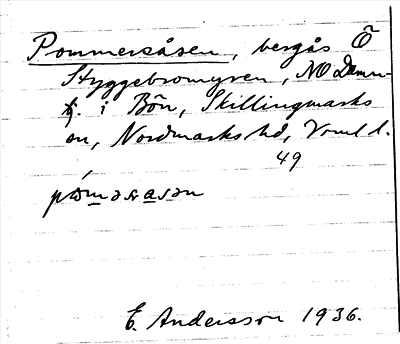 Pommersåsen, bergås Ö
Styggebromyren, NO Damm-
tj. i Bön, Skillingmarks
sn, Nordmarks hd, Vrml l.
49
pòmərsåsən
E. Andersson 1936.